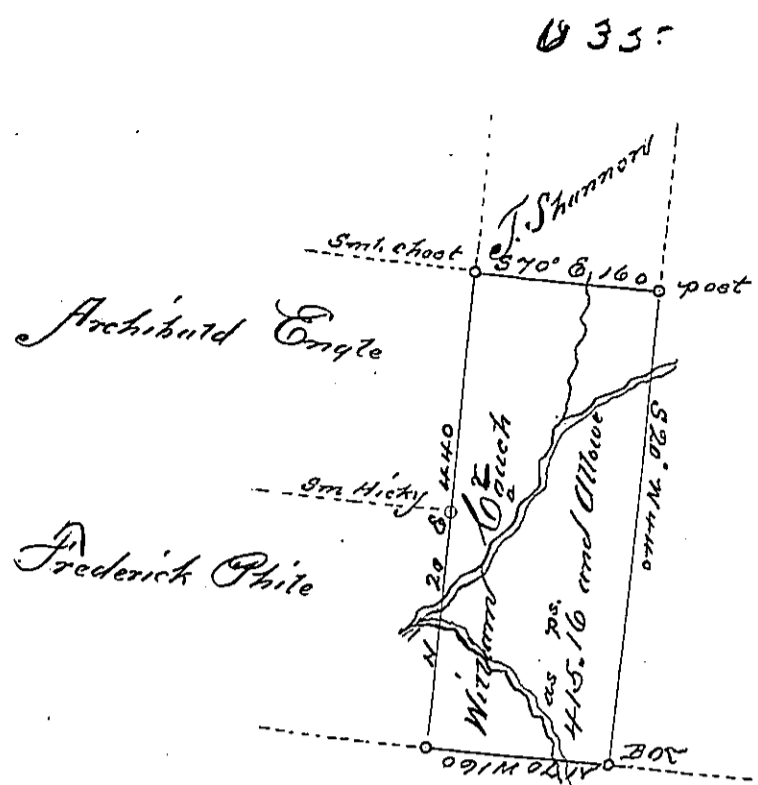 B 33:
J. Shannon
Sml. Chest
S 70° E 160
post
Archibald Engle
N 20 E 440
S 20° W 440
Sm Hicky
Frederick Phile
William Couch
as ps.
415.16 and Allowe
N 70 W 160